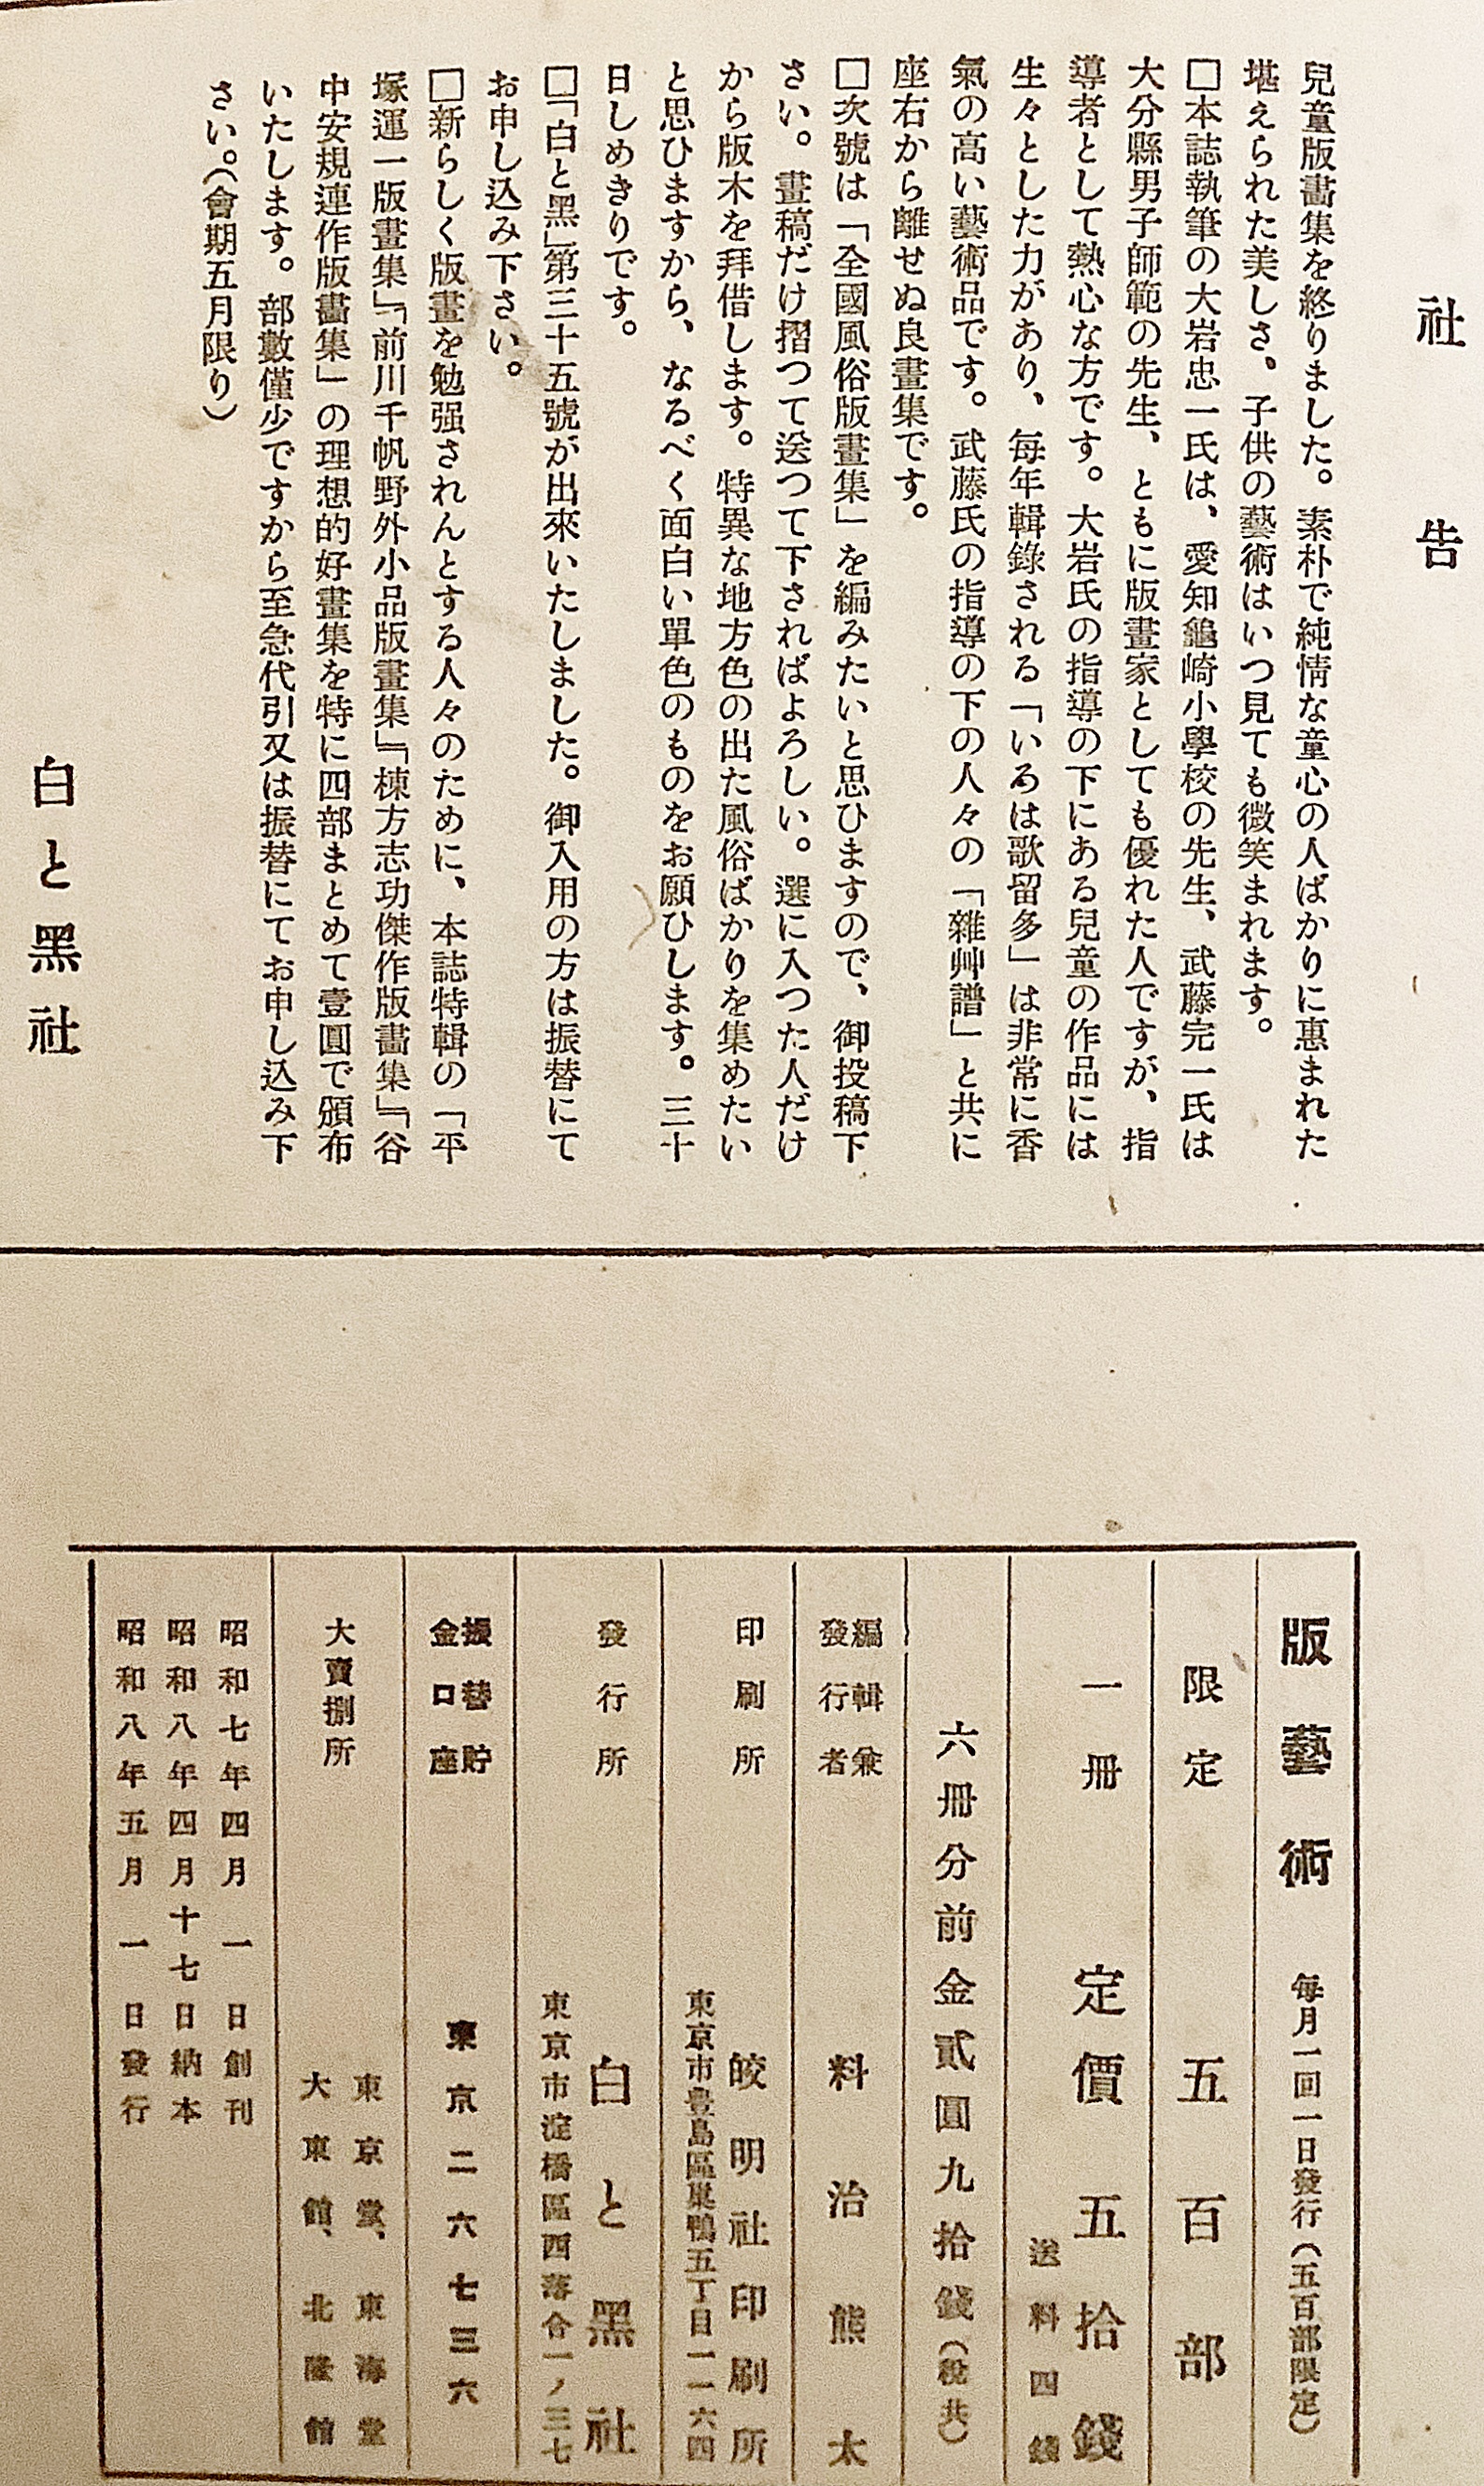 社告
兒童版畫集を終りました。素朴で純情な童心の人ばかりに惠まれた
堪えられた美しさ、子供の藝術はいつ見ても微笑まれます。
□本誌執筆の大岩忠一氏は、愛知龜崎小學校の先生、武藤完一氏は
大分縣男子師範の先生、ともに版畫家としても優れた人ですが、指
導者として熱心な方です。大岩氏の指導の下にある兒童の作品には
生々とした力があり、每年輯錄される「いろは歌留多」は非常に香
氣の高い藝術品です。武藤氏の指導の下の人々の「雜艸譜」と共に
座右から離せぬ良畫集です。
□次號は「全國風俗版畫集」を編みたいと思ひますので、御投稿下
さい。畫稿だけ摺つて送つて下さればよろしい。選に入つた人だけ
から版木を拜借します。特異な地方色の出た風俗ばかりを集めたい
と思ひますから、なるべく面白い單色のものをお願ひします。三十
日しめきりです。
□「白と黑」第三十五號が出來いたしました。御入用の方は振替にて
お申し込み下さい。
□新らしく版畫を勉强されんとする人々のために、本誌特輯の「平
塚運一版畫集」「前川千帆野外小品版畫集」「棟方志功傑作版畫集」「谷
中安規連作版畫集」の理想的好畫集を特に四部まとめて壹圓で頒布
いたします。部數僅少ですから至急代引又は振替にてお申し込み下
さい。(會期五月限り)
白と黑社
版藝術 每月一回一日發行(五百部限定)
限定 五百部
一冊 定價五拾錢
送料四錢
六冊分前金貳圓九拾錢(稅共)
編輯兼
發行者 料治熊太
印刷所 皎明社印刷所
東京市豊島區巢鴨五丁目一一六四
發行所 白と黑社
東京市淀橋區西落合一ノ三七
振替貯
金口座 東京二六七三六
大賣捌所 東京堂、東海堂
大東館、北隆館
昭和七年四月一日創刊
昭和八年四月十七日納本
昭和八年五月一日發行